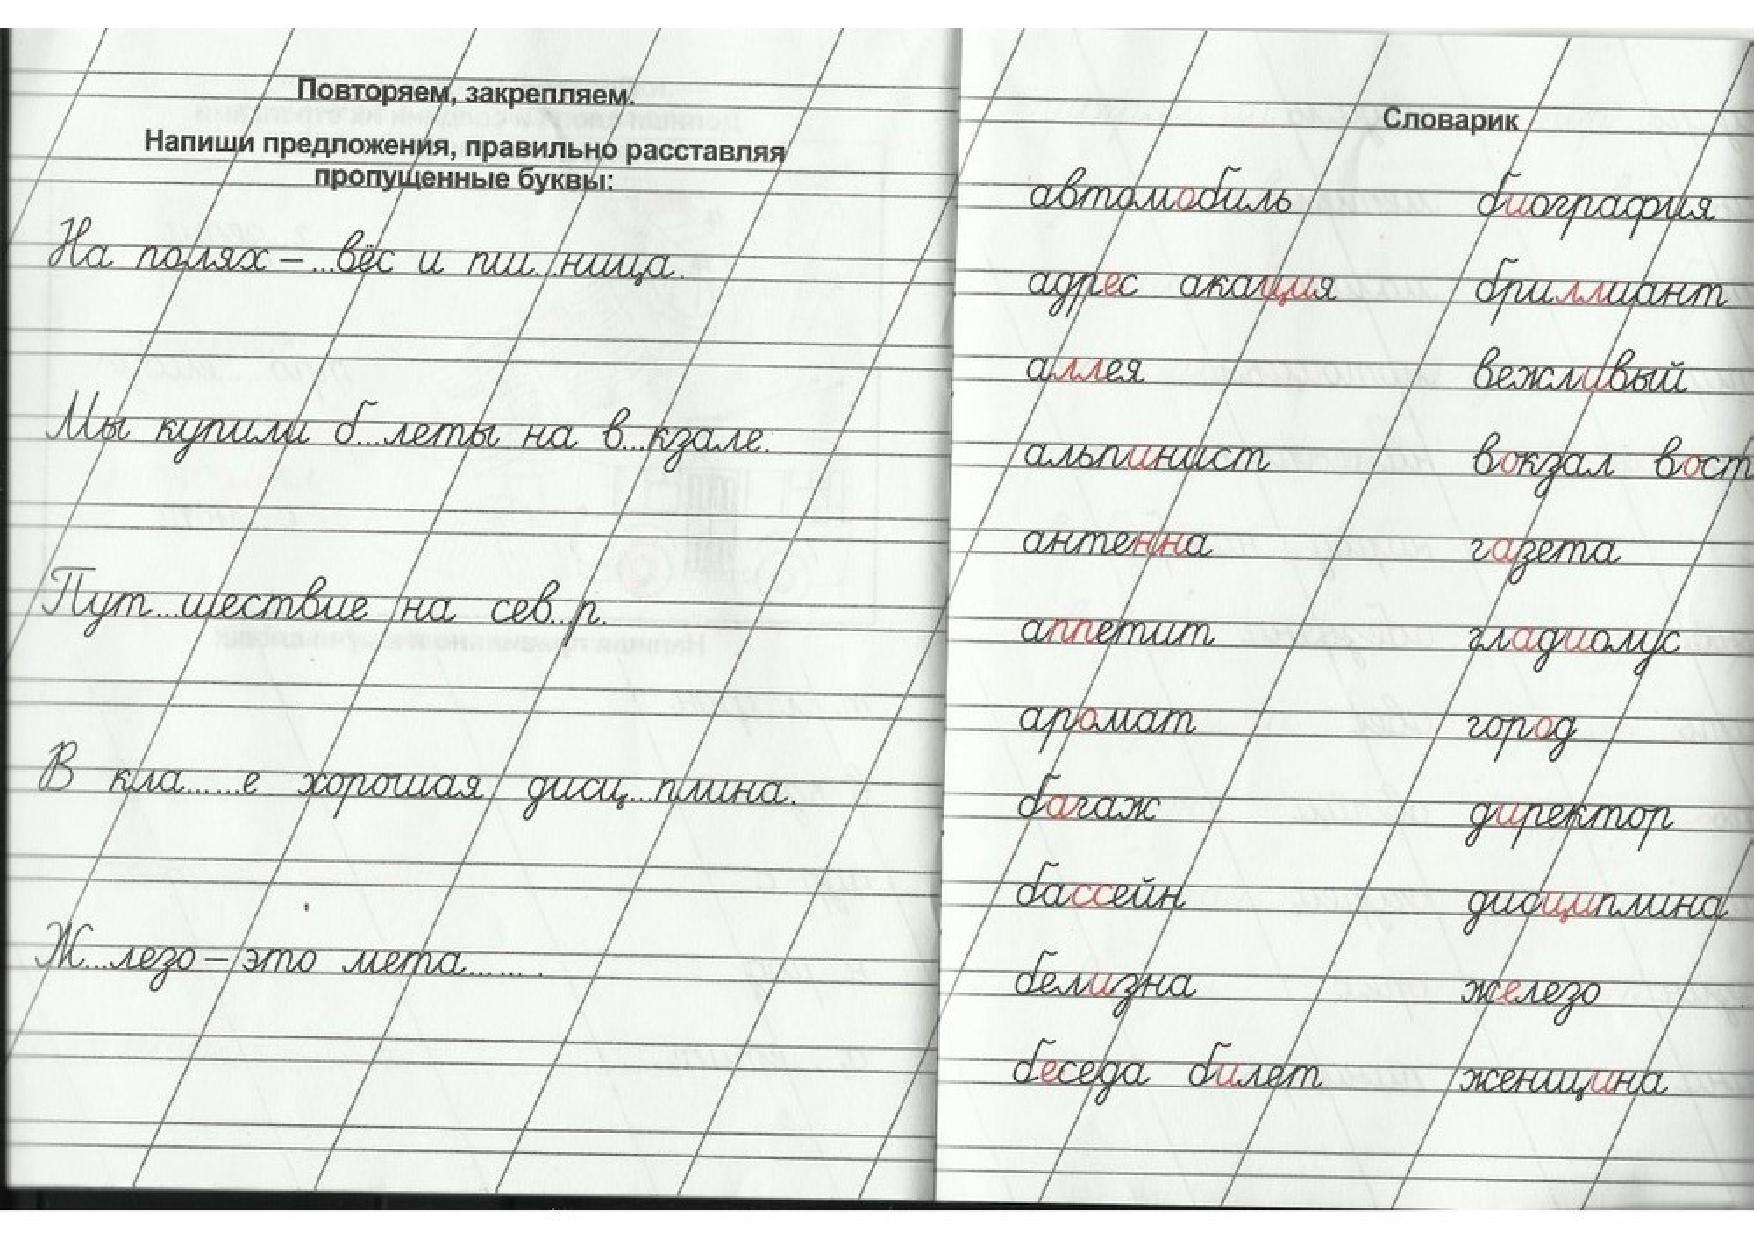 Повторяем, закрепляем.
Напиши предложения, правильно расставляя
пропущенные буквы:
На полях – ...вёс и пш...ница.
Мы купили б...леты на в...кзале.
Пут...шествие на сев...р.
В кла......е хорошая дисц...плина.
Ж...лезо – это мета...... .
Словарик
автомобиль биография
адрес акация бриллиант
аллея вежливый
альпинист вокзал вост
антенна газета
аппетит гладиолус
аромат город
багаж директор
бассейн дисциплина
белизна железо
беседа билет женщина